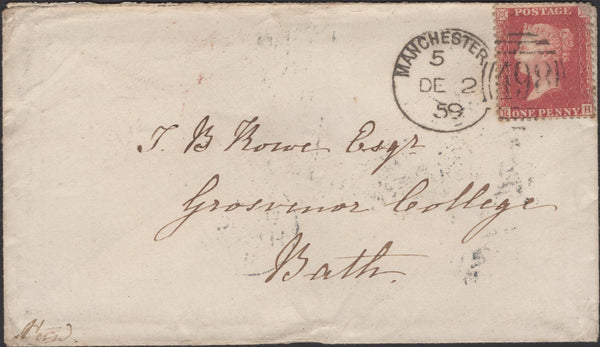 MANCHESTER
5
DE 2
59
498
POSTAGE
ONE PENNY
H
J. B Rowe Esqr
Grosvenor College
Bath.